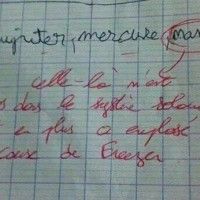 jupiter, mercure mar
celle-là n'est
s dans le système solai
en plus a explosé
cause de Freezer